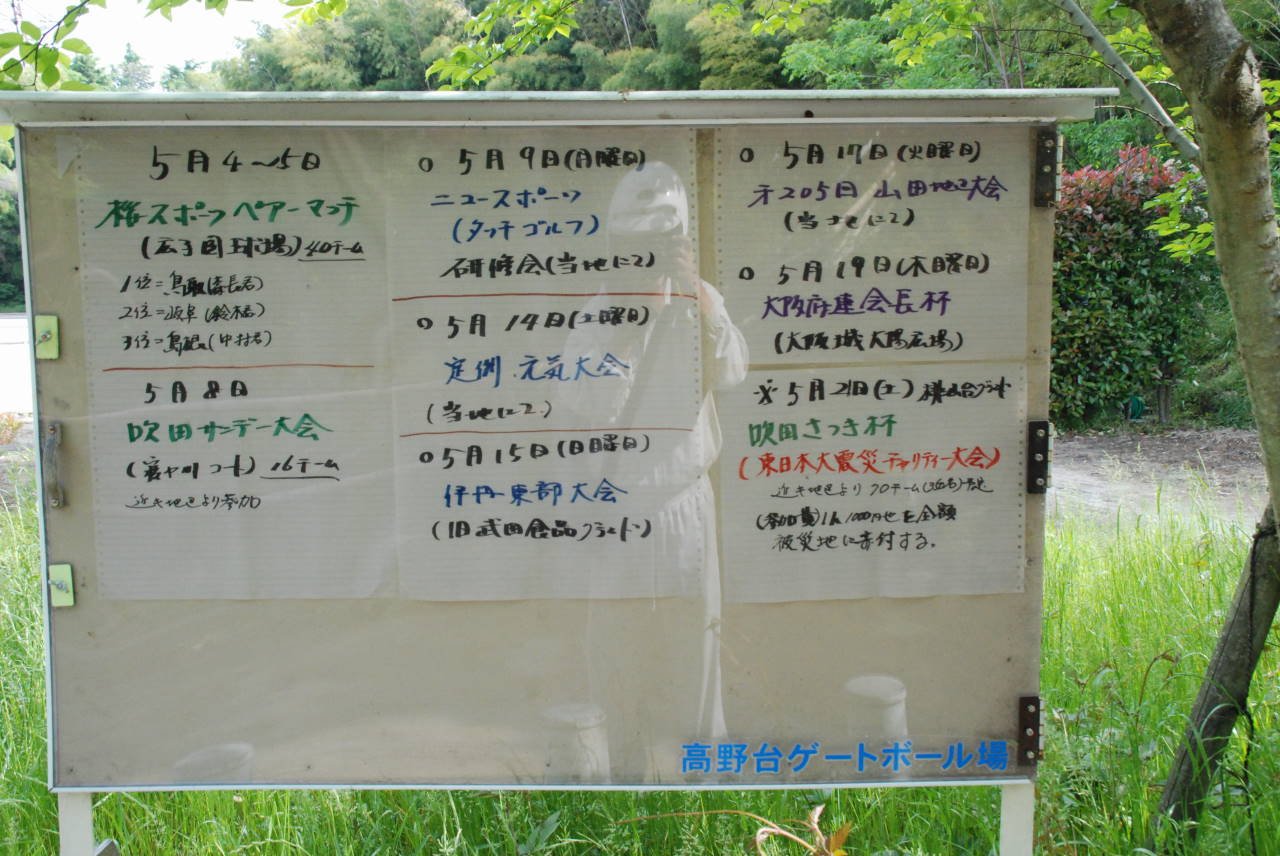 5月4~5日
桜スポーツペアーマッチ
(玉子園球場) 40チーム
1位=鳥取(湊長者)
2位=岐阜(鈴橋)
3位=島根(中村君)
5月8日
吹田サンデー大会
(寝ヤ川コート) 16チーム
近き地区より参加
○ 5月9日(月曜日)
ニュースポーツ
(タッチゴルフ)
研修会(当地にて)
○ 5月14日(土曜日)
定例 元気大会
(当地にて)
○ 5月15日(日曜日)
伊丹東部大会
(旧武田食品グランド)
○ 5月17日(火曜日)
才205回 山田地区大会
(当地にて)
○ 5月19日(木曜日)
大阪府連会長杯
(大阪城太陽広場)
※ 5月21日(土)
吹田さつき杯
(東日本大震災チャリティー大会)
近き地区より 70チーム
(参加費)1人1000円也を全額
被災地に寄付する。
高野台ゲートボール場